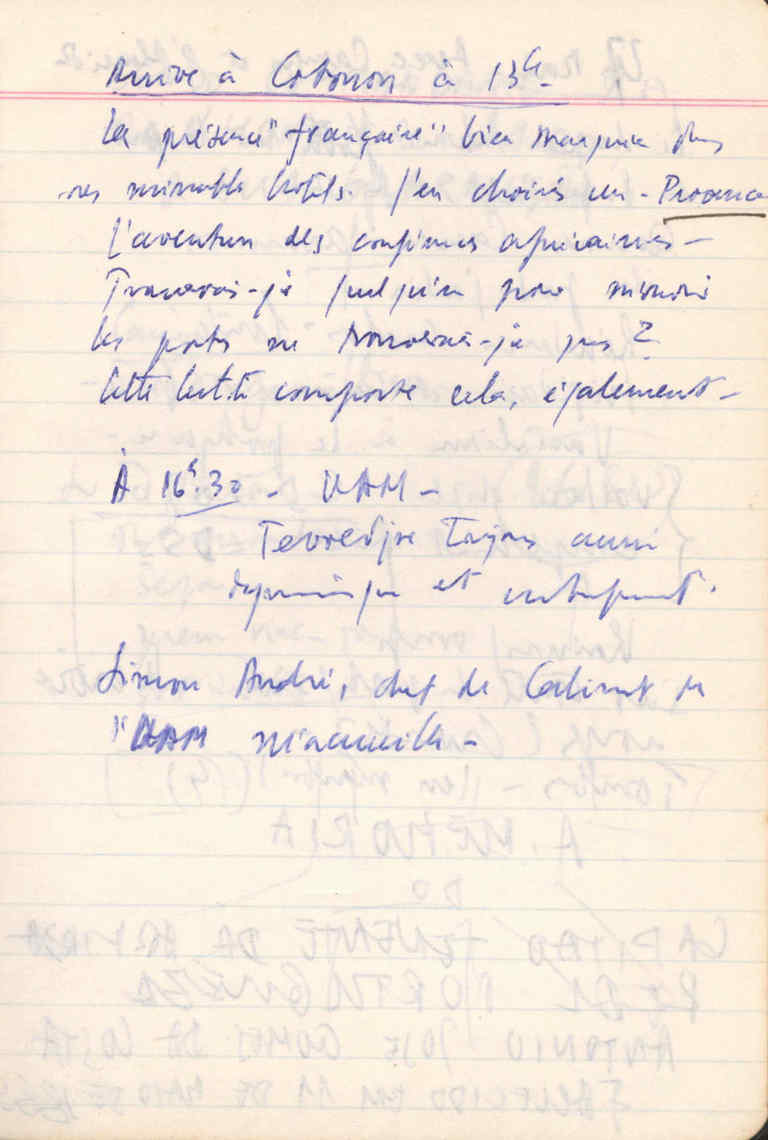 Arrive à Cotonou à 13h-
La présence "française" bien marquée dans
ces minables hotels. J'en choisis un - Provence
L'aventure des confins africaines -
Trouverai-je quelqu'un pour m'ouvrir
les portes ne trouverai-je pas ?
Cette lutte comporte cela, également -
À 16h.30 - UAM -
Tevoedjre toujours aussi
dynamique et
Simon André, chef de Cabinet de
l'UAM m'accueille -